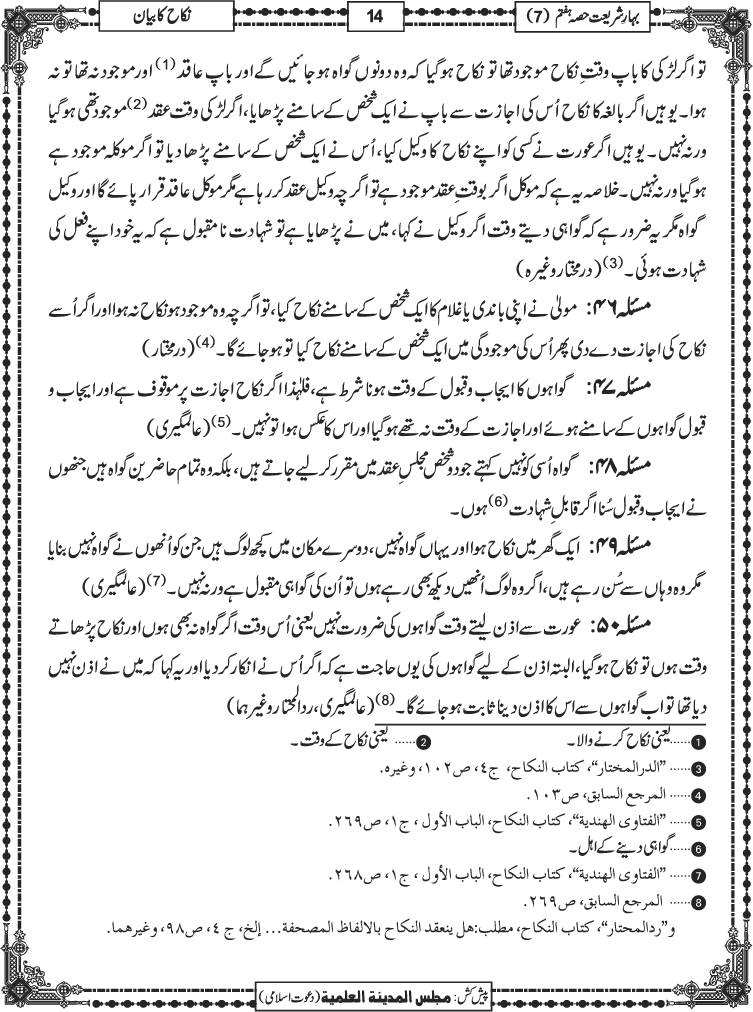 بہارِ شریعت حصہ ہفتم (7)
14
نکاح کا بیان
تو اگر لڑکی کا باپ وقتِ نکاح موجود تھا تو نکاح ہوگیا کہ وہ دونوں گواہ ہو جائیں گے اور باپ عاقد (1) اور موجود نہ تھا تو نہ
ہوا۔ یوہیں اگر بالغہ کا نکاح اُس کی اجازت سے باپ نے ایک شخص کے سامنے پڑھایا، اگر لڑکی وقت عقد (2) موجود تھی ہوگیا
ورنہ نہیں۔ یوہیں اگر عورت نے کسی کو اپنے نکاح کا وکیل کیا، اُس نے ایک شخص کے سامنے پڑھا دیا تو اگر موکلہ موجود ہے
ہوگیا ورنہ نہیں۔ خلاصہ یہ ہے کہ موکل اگر بوقتِ عقد موجود ہے تو اگرچہ وکیل عقد کر رہا ہے مگر موکل عاقد قرار پائے گا اور وکیل
گواہ مگر یہ ضرور ہے کہ گواہی دیتے وقت اگر وکیل نے کہا، میں نے پڑھایا ہے تو شہادت نامقبول ہے کہ یہ خود اپنے فعل کی
شہادت ہوئی۔ (3) (درمختار وغیرہ)
مسئلہ ۴۶: مولیٰ نے اپنی باندی یا غلام کا ایک شخص کے سامنے نکاح کیا، تو اگرچہ وہ موجود ہو نکاح نہ ہوا اور اگر اُسے
نکاح کی اجازت دے دی پھر اُس کی موجودگی میں ایک شخص کے سامنے نکاح کیا تو ہو جائے گا۔ (4) (درمختار)
مسئلہ ۴۷: گواہوں کا ایجاب و قبول کے وقت ہونا شرط ہے، فلہٰذا اگر نکاح اجازت پر موقوف ہے اور ایجاب و
قبول گواہوں کے سامنے ہوئے اور اجازت کے وقت نہ تھے ہوگیا اور اس کا عکس ہوا تو نہیں۔ (5) (عالمگیری)
مسئلہ ۴۸: گواہ اُسی کو نہیں کہتے جو دو شخص مجلسِ عقد میں مقرر کر لیے جاتے ہیں، بلکہ وہ تمام حاضرین گواہ ہیں جنھوں
نے ایجاب و قبول سُنا اگر قابلِ شہادت (6) ہوں۔
مسئلہ ۴۹: ایک گھر میں نکاح ہوا اور یہاں گواہ نہیں، دوسرے مکان میں کچھ لوگ ہیں جن کو اُنھوں نے گواہ نہیں بنایا
مگر وہ وہاں سے سُن رہے ہیں، اگر وہ لوگ اُنھیں دیکھ بھی رہے ہوں تو اُن کی گواہی مقبول ہے ورنہ نہیں۔ (7) (عالمگیری)
مسئلہ ۵۰: عورت سے اذن لیتے وقت گواہوں کی ضرورت نہیں یعنی اُس وقت اگر گواہ نہ بھی ہوں اور نکاح پڑھاتے
وقت ہوں تو نکاح ہوگیا، البتہ اذن کے لیے گواہوں کی یوں حاجت ہے کہ اگر اُس نے انکار کر دیا اور یہ کہا کہ میں نے اذن نہیں
دیا تھا تو اب گواہوں سے اس کا اذن دینا ثابت ہو جائے گا۔ (8) (عالمگیری، ردالمحتار وغیرہما)
1 ......یعنی نکاح کرنے والا۔ 2 ...... یعنی نکاح کے وقت۔
3 ...... ”الدرالمختار“، کتاب النکاح، ج٤، ص١٠٢، وغیره.
4 ...... المرجع السابق، ص١٠٣.
5 ...... ”الفتاوی الهندیة“، کتاب النکاح، الباب الأول ، ج١، ص٢٦٩.
6 ......گواہی دینے کے اہل۔
7 ...... ”الفتاوی الهندیة“، کتاب النکاح، الباب الأول ، ج١، ص٢٦٨.
8 ...... المرجع السابق، ص٢٦٩.
و ”ردالمحتار“، کتاب النکاح، مطلب:هل ینعقد النکاح بالالفاظ المصحفة... إلخ، ج ٤، ص٩٨، وغیرهما.
پیش کش: مجلس المدینة العلمیة (دعوتِ اسلامی)